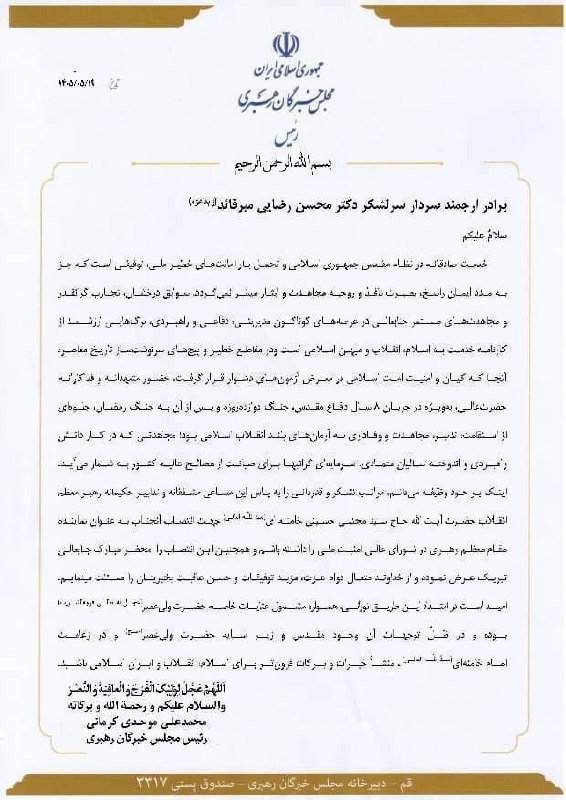 جمهوری اسلامی ایران
مجلس خبرگان رهبری
رئیس
تاریخ ۱۴۰۵/۰۵/۱۹
بسم الله الرحمن الرحیم
برادر ارجمند سردار سرلشکر دکتر محسن رضایی میرقائد (زیدعزه)
سلامٌ علیکم
خدمت صادقانه در نظام مقدس جمهوری اسلامی و تحمل بار امانت‌های خطیر ملی، توفیقی است که جز
به مدد ایمان راسخ، بصیرت نافذ و روحیه مجاهدت و ایثار میسر نمی‌گردد. سوابق درخشان، تجارب گرانقدر
و مجاهدت‌های مستمر جنابعالی در عرصه‌های گوناگون مدیریتی، دفاعی و راهبردی، برگ‌هایی ارزشمند از
کارنامه خدمت به اسلام، انقلاب و میهن اسلامی است ودر مقاطع خطیر و پیچ‌های سرنوشت‌ساز تاریخ معاصر،
آنجا که کیان و امنیت امت اسلامی در معرض آزمون‌های دشوار قرار گرفت، حضور متعهدانه و فداکارانه
حضرت‌عالی، به‌ویژه در جریان ۸ سال دفاع مقدس، جنگ دوازده‌روزه و پس از آن به جنگ رمضان، جلوه‌ای
از استقامت، تدبیر، مجاهدت و وفاداری به آرمان‌های بلند انقلاب اسلامی بود؛ مجاهدتی که در کنار دانش
راهبردی و اندوخته سالیان متمادی، سرمایه‌ای گرانبها برای صیانت از مصالح عالیه کشور به شمار می‌آید.
اینک بر خود وظیفه می‌دانم، مراتب تشکر و قدردانی را به پاس این مساعی مشفقانه و تدابیر حکیمانه رهبر معظم
انقلاب حضرت آیت الله حاج سید مجتبی حسینی خامنه ای (مدّ ظله العالی) جهت انتصاب آنجناب به عنوان نماینده
مقام معظم رهبری در شورای عالی امنیت ملی را داشته باشم و همچنین این انتصاب را محضر مبارک جنابعالی
تبریک عرض نموده و از خداوند متعال دوام عزت، مزید توفیقات و حسن عاقبت بخیرتان را مسئلت می‌نمایم.
امید است در امتداد این طریق نورانی، همواره مشمول عنایات خاصه حضرت ولی‌عصر
بوده و در ظلّ توجهات آن وجود مقدس و زیر سایه حضرت ولی‌عصر (عج) و در زعامت
امام خامنه‌ای (مدّ ظله العالی)، منشأ خیرات و برکات فزون‌تر برای اسلام، انقلاب و ایران اسلامی باشید.
اَللّهُمَّ عَجِّل لِوَلِیِّکَ الْفَرَجَ وَ الْعافِیَةَ وَ النَّصْرَ
والسلام علیکم و رحمة الله و برکاته
محمدعلی موحدی کرمانی
رئیس مجلس خبرگان رهبری
قم - دبیرخانه مجلس خبرگان رهبری - صندوق پستی ۳۳۱۷